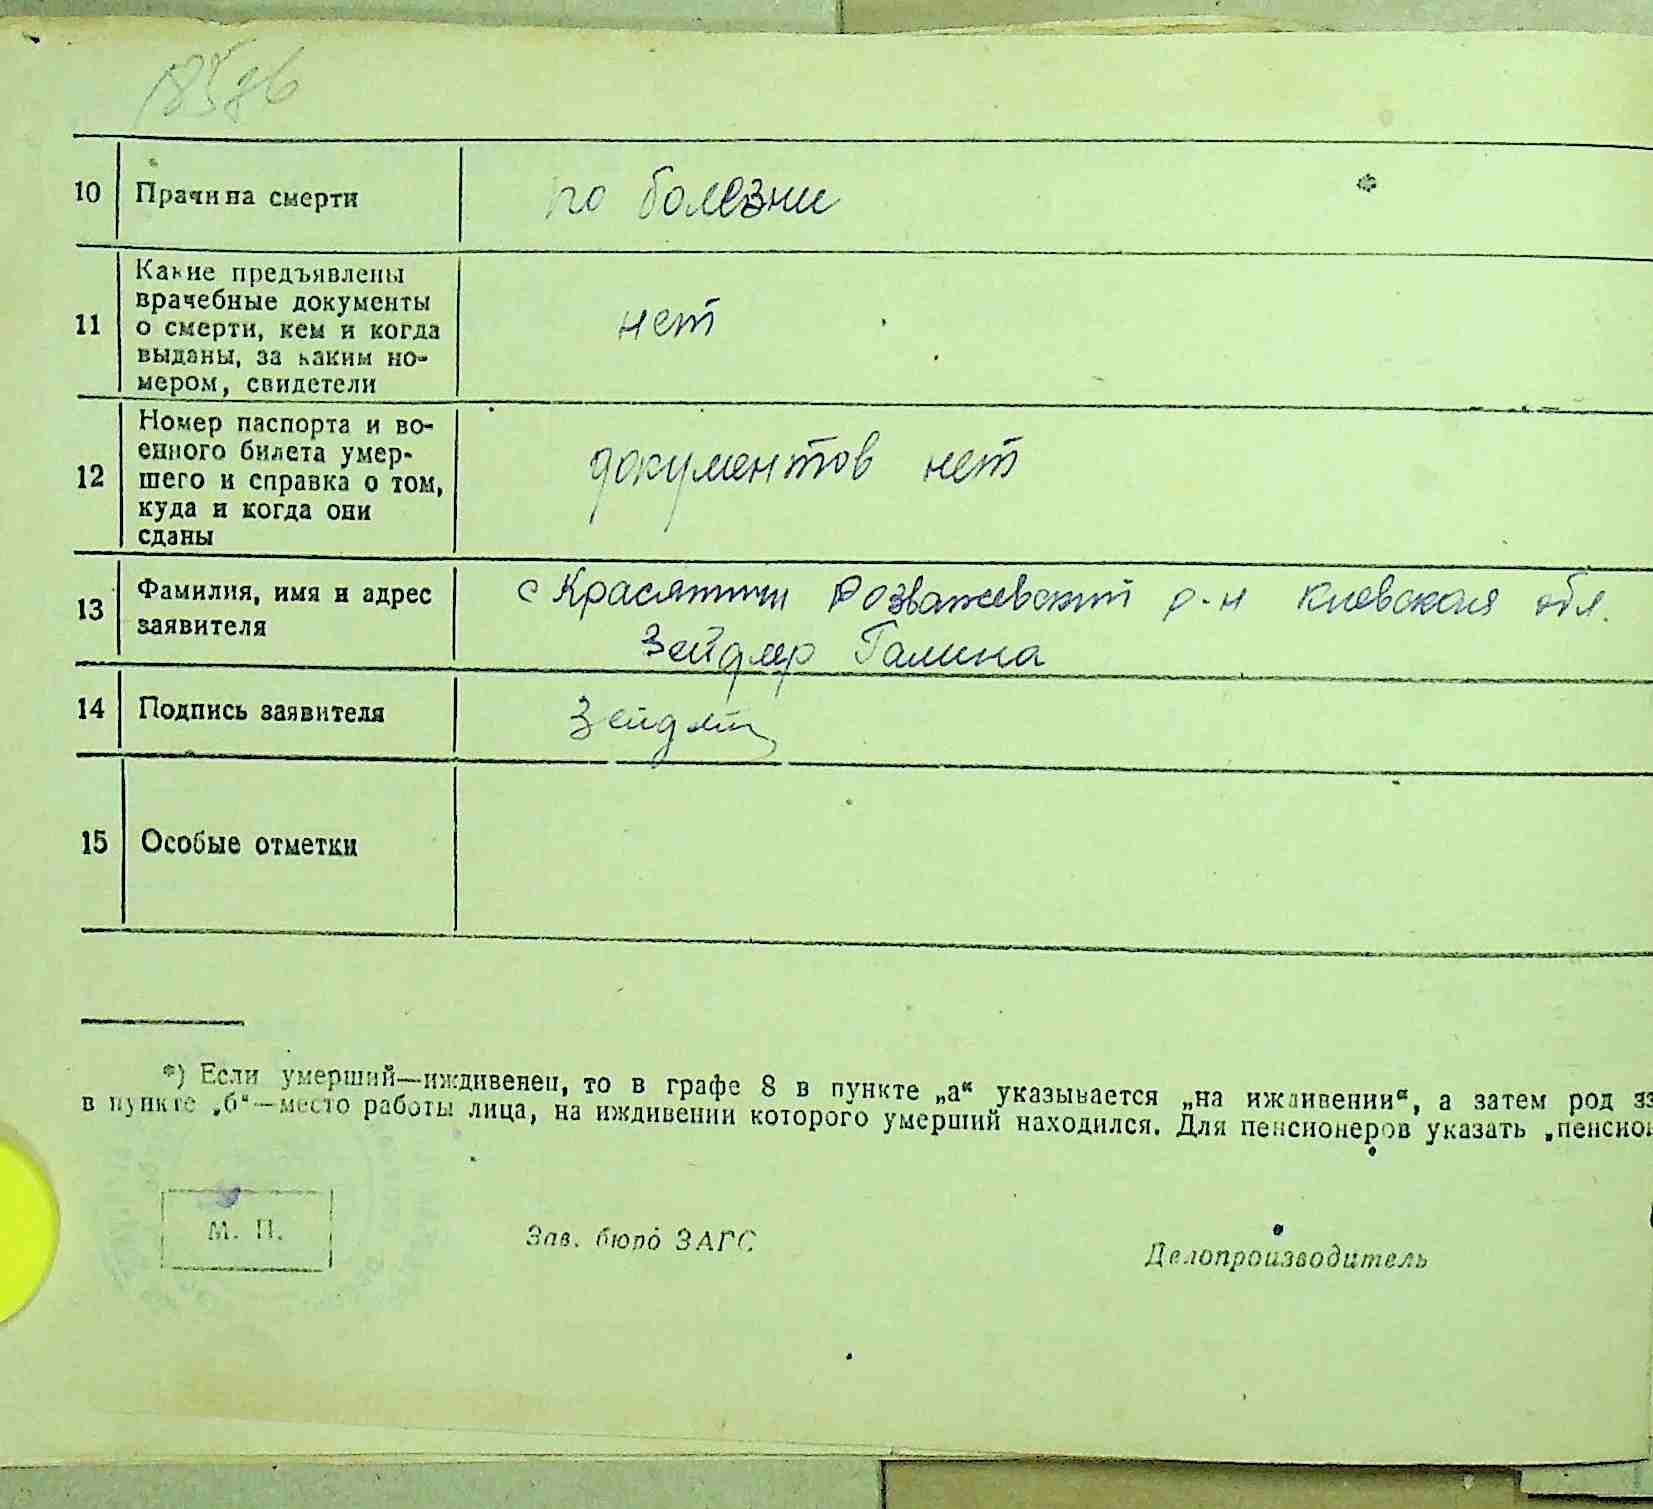 10 Прачина смерти по болезни
11 Какие предъявлены
врачебные документы
о смерти, кем и когда
выданы, за каким но-
мером, свидетели
нет
12 Номер паспорта и во-
енного билета умер-
шего и справка о том,
куда и когда они
сданы
документов нет
13 Фамилия, имя и адрес
заявителя
с Красятичи Розважевский р-н Киевская обл.
Зейдлер Галина
14 Подпись заявителя
15 Особые отметки
*) Если умерший—иждивенец, то в графе 8 в пункте „а“ указывается „на иждивении“, а затем род
в пункте „б“—место работы лица, на иждивении которого умерший находился. Для пенсионеров указать
М. П.
Зав. бюро ЗАГС
Делопроизводитель